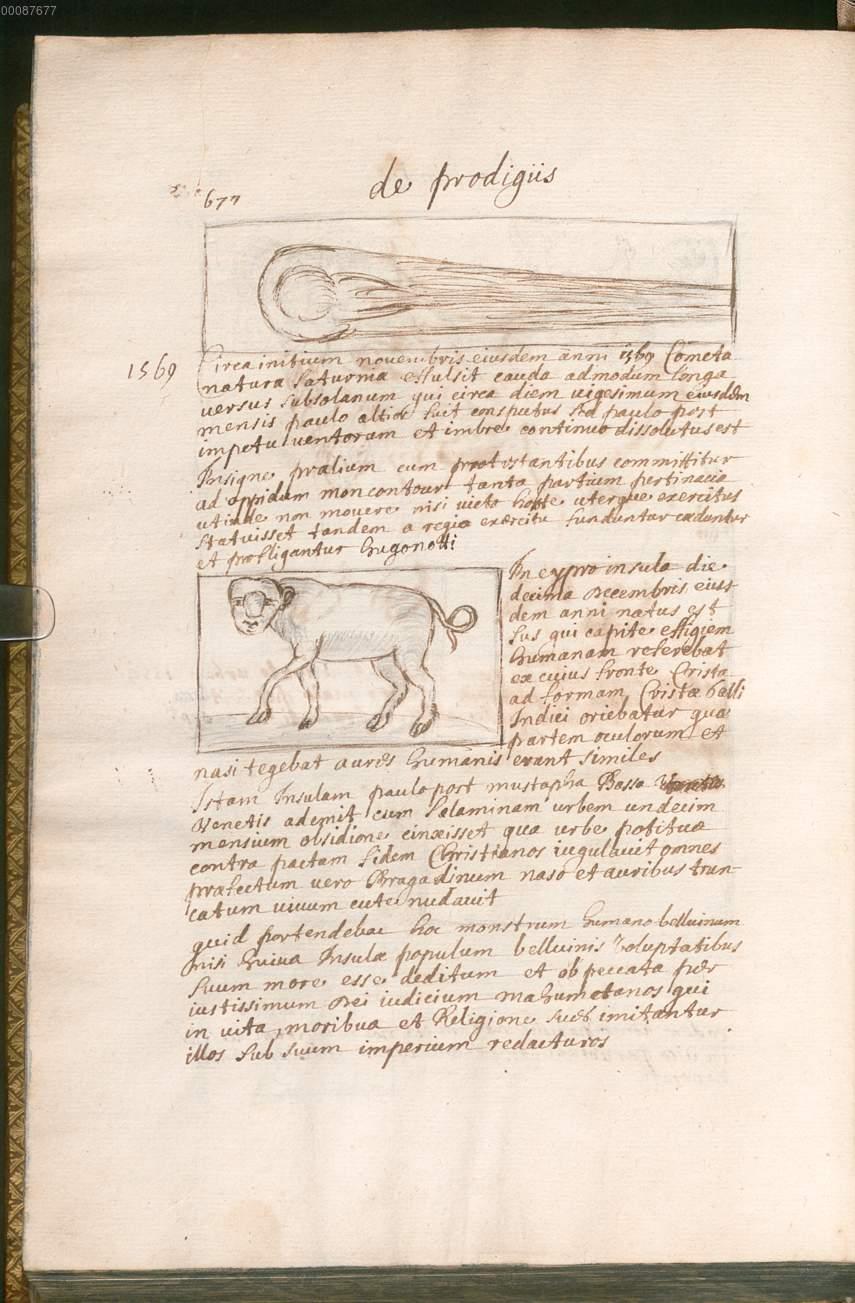 00087677
de prodigiis
677
1569
Circa initium novembris eiusdem anni 1569 Cometa
natura saturnia effulsit cauda admodum longa
versus subsolanum qui circa diem vigesimum eiusdem
mensis paulo altior fuit conspectus sed paulo post
impetu ventorum et imbre continuo dissolutus est
Insigne prælium cum protestantibus committitur
ad oppidum moncontour tanta partium pertinacia
ut inde non movere nisi victo hoste uterque exercitus
statuisset tandem a regio exercitu funduntur cæduntur
et profligantur hugonotti
In cypro insula die
decima decembris eius
dem anni natus est
sus qui capite effigiem
humanam referebat
ex cuius fronte Crista
ad formam Cristæ Galli
Indici oriebatur quæ
partem oculorum et
nasi tegebat aures humanis erant similes
Istam Insulam paulo post mustapha Bassa
Venetis ademit cum Salaminam urbem undecim
mensium obsidione cinxisset qua urbe potitus
contra pactam fidem Christianos iugulavit omnes
præfectum vero Bragadinum naso et auribus trun
catum vivum cute nudavit
quid portendebat hoc monstrum humano belluinum
nisi huius Insulæ populum belluinis voluptatibus
suum more esse deditum et ob peccata per
iustissimum Dei iudicium mahumetanos qui
in vita, moribus et Religione sues imitantur
illos sub suum imperium redacturos